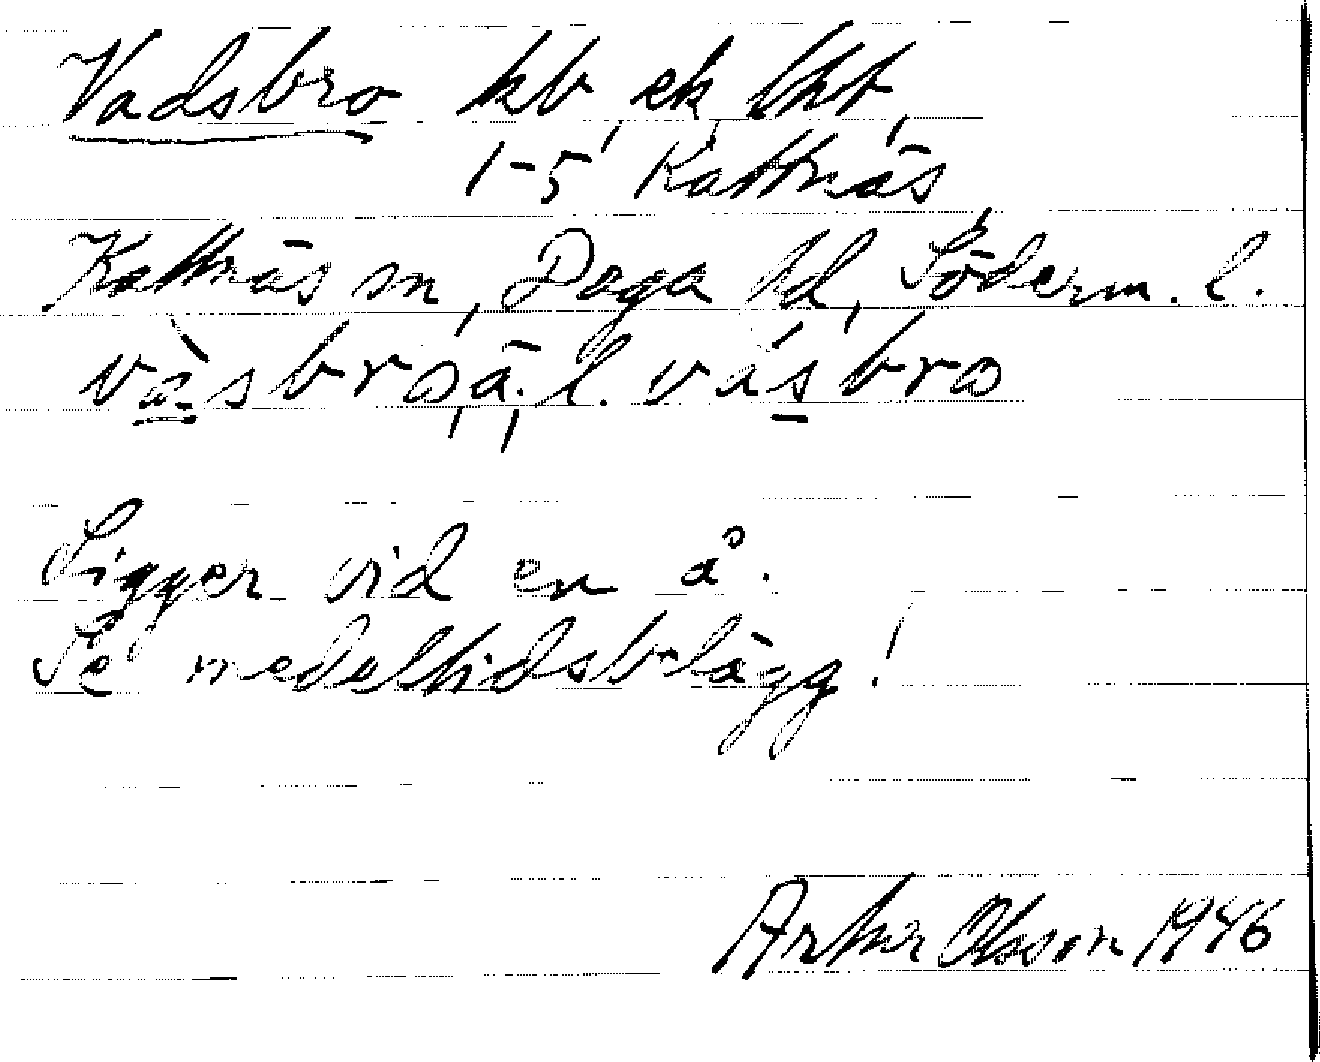 Vadsbro kb, ek, lht,
1-5 Kattnäs,
Kattnäs sn, Daga hd, Söderm. l.
vàsbro, ä. l. vásbro
Ligger vid en å.
Se medeltidsbelägg!
Arthur Olsson 1946